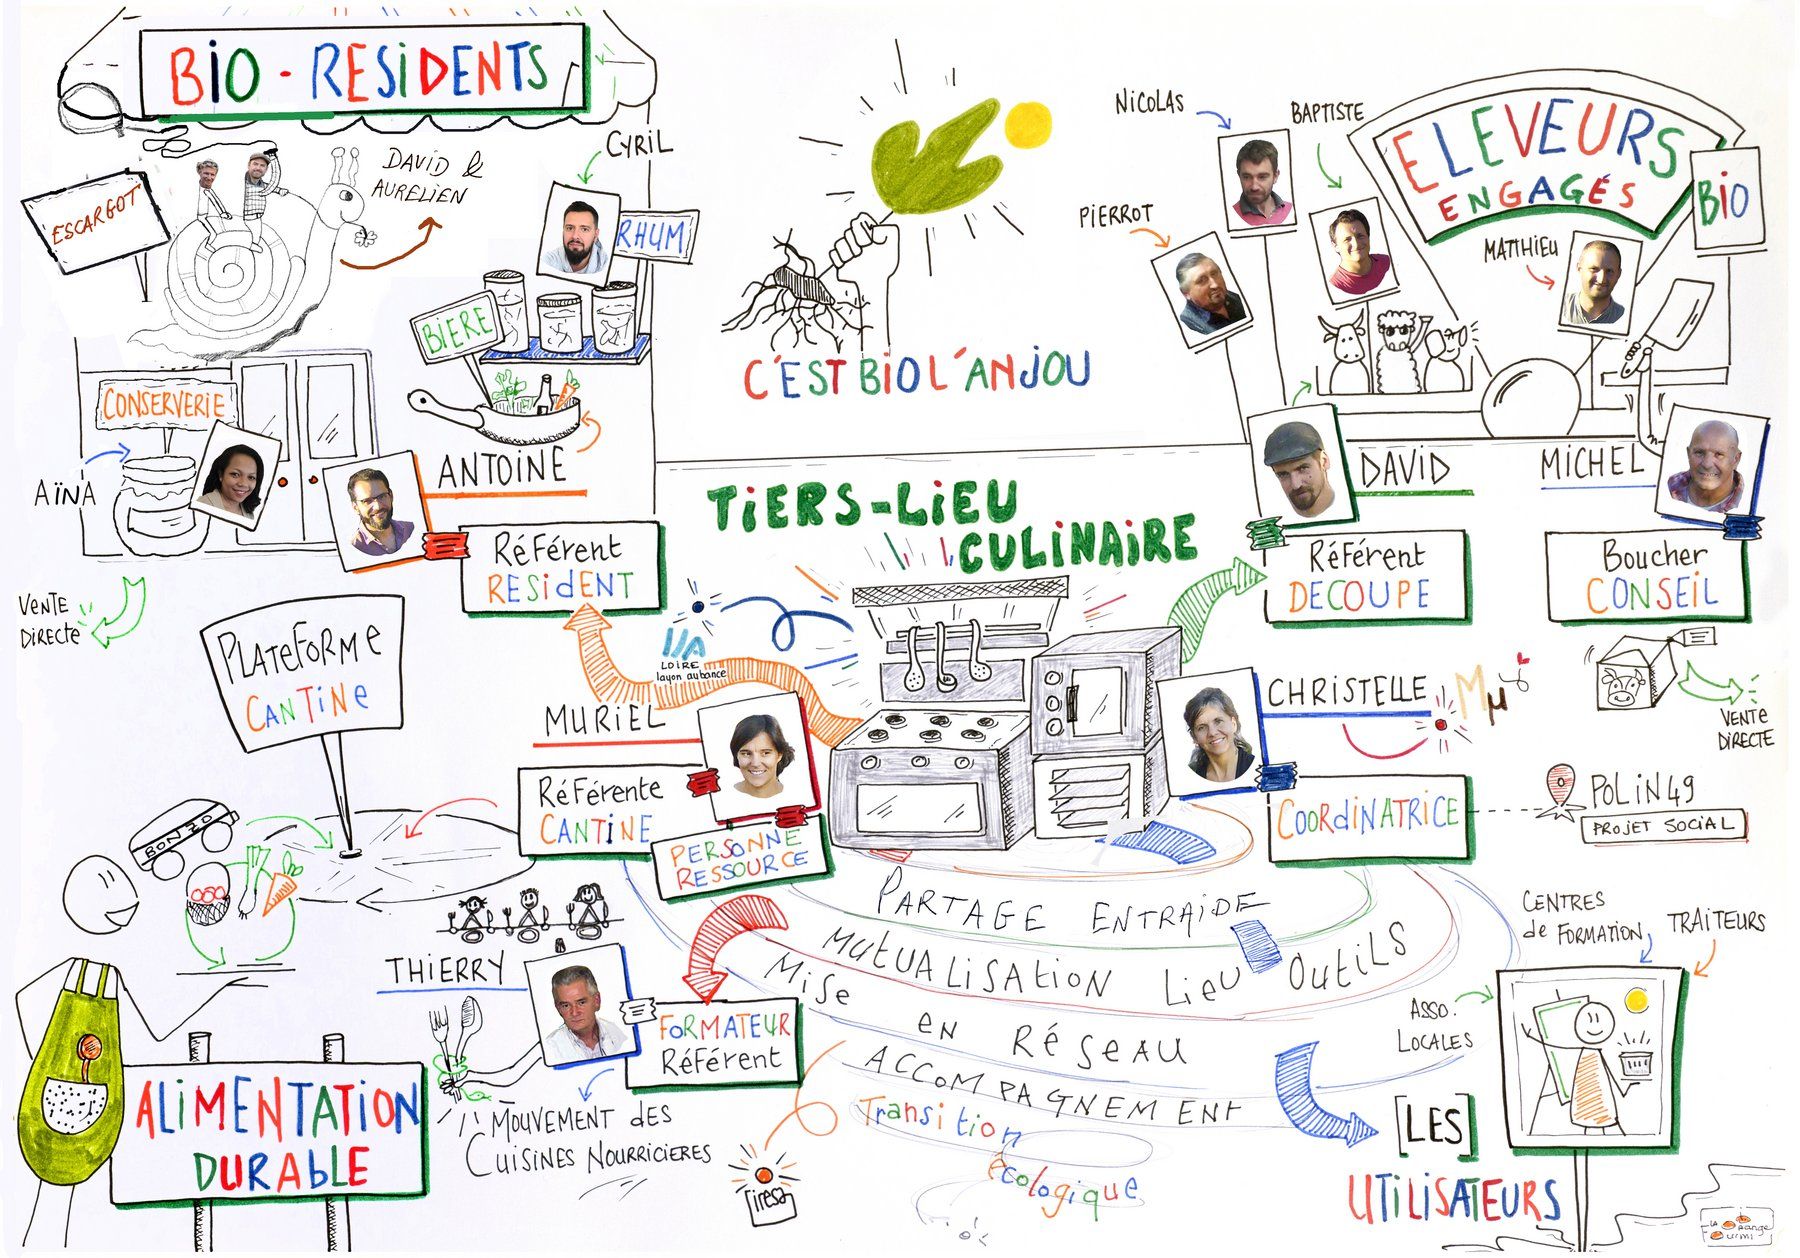 BiO - RESiDENTS
ESCARGOT
DAViD &
AURELiEN
CYRiL
RHUM
BiERE
CONSERVERiE
AïNA
ANTOiNE
RéFérent
RESidENT
VENTE
DiRECTE
C'EST BiO L'ANJOU
NiCOLAS
BAPTiSTE
PiERROT
MATTHiEU
ELEVEURS
ENGAGÉS
BiO
DAViD
MiCHEL
RéFérent
DECOUPE
Boucher
CONSEiL
VENTE
DiRECTE
TiERS-LiEU
CULiNAiRE
PLATEFORMe
CANTiNE
LOiRE
layon aubance
MURiEL
RéFérente
CANTiNE
PERSONNE
RESSOURCE
CHRiSTELLE
Mµ
COORdiNATRiCE
POLiN49
PROJET SOCiAL
BONZO
PARTAGE ENTRAiDE
MUTUALiSATiON LieU OUTiLS
MiSe
eN RéSeAU
ACCOMPAGNEMENT
Transition
écologique
THiERRY
FORMATEUR
RéFérent
MOUVEMENT des
CUiSiNES NOURRiCiERES
iresa
ALiMENTATiON
DURAbLE
CENTRES
de FORMATiON
TRAiTEURS
ASSO.
LOCALES
[LES]
UTiLiSATEURS